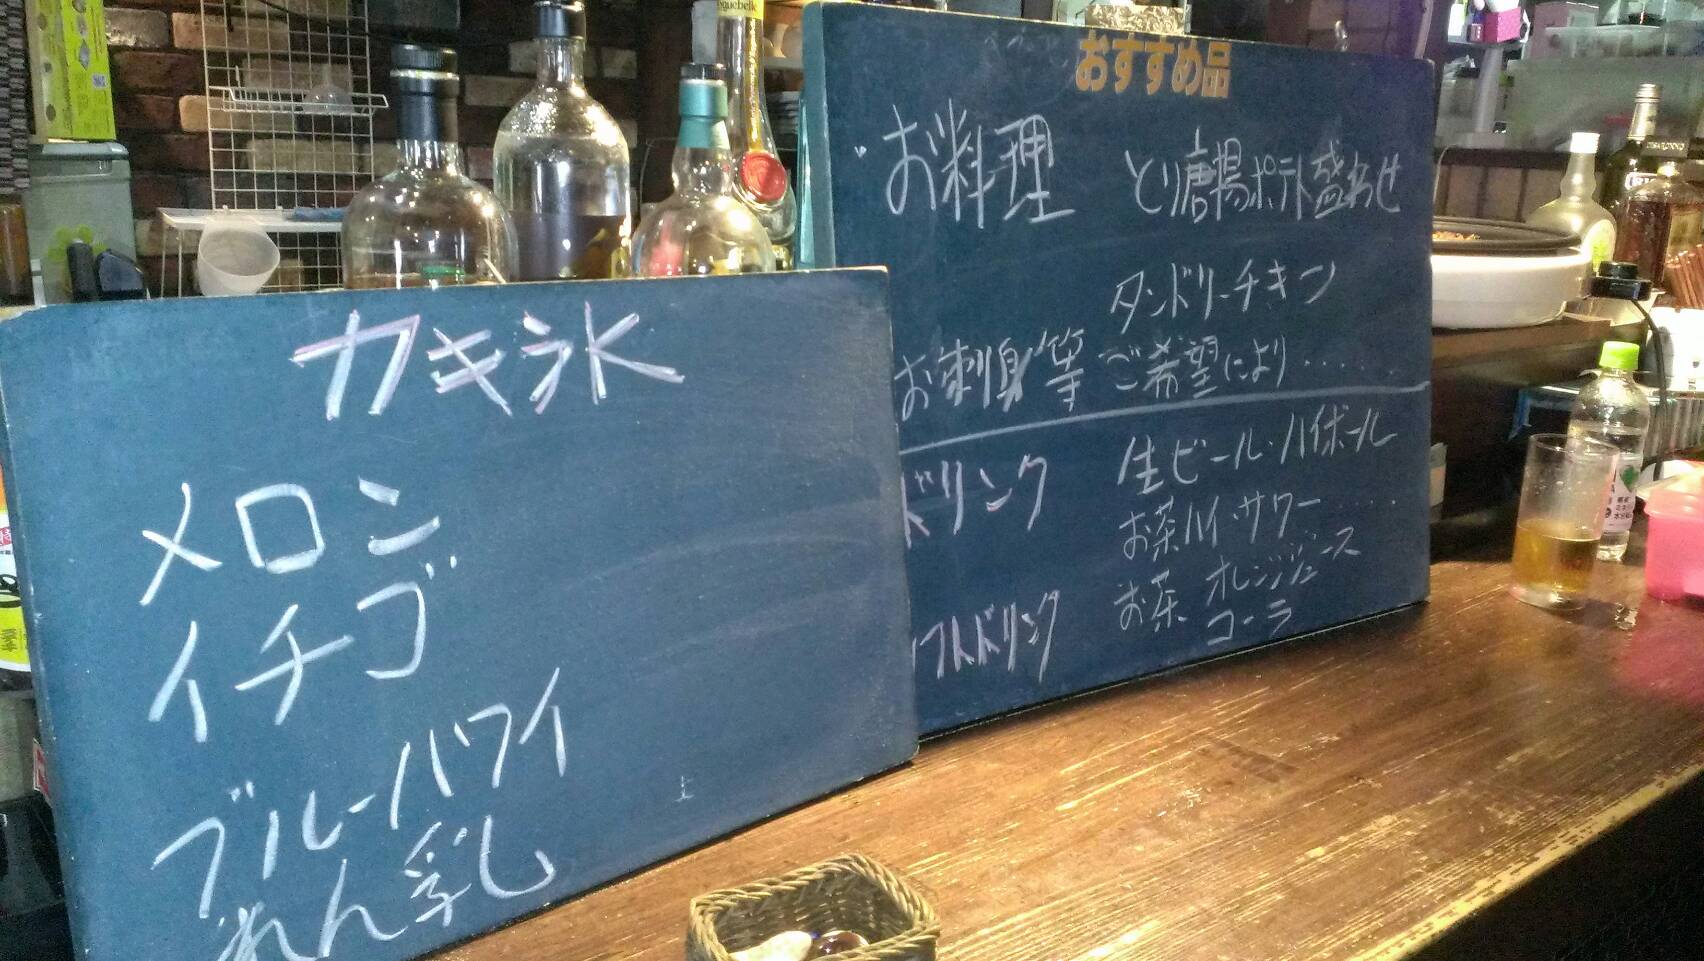 カキ氷
メロン
イチゴ
ブルーハワイ
れん乳
おすすめ品
お料理 とり唐揚ポテト盛わせ
タンドリーチキン
お刺身等 ご希望により……
ドリンク 生ビール・ハイボール
お茶ハイ・サワー……
ソフトドリンク お茶 オレンジジュース
コーラ
DISARONNO